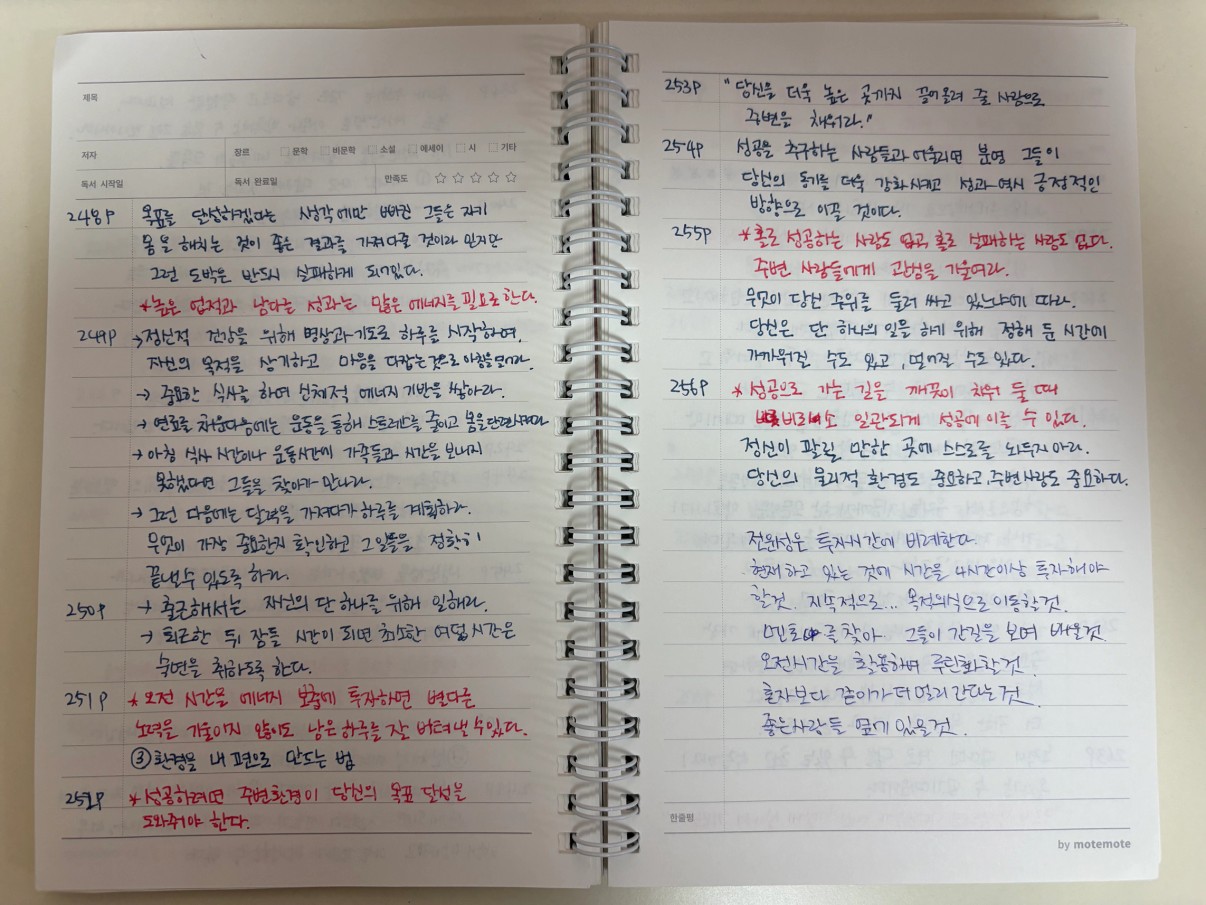 제목
저자 장르 □ 문학 □ 비문학 □ 소설 □ 에세이 □ 시 □ 기타
독서 시작일 독서 완료일 만족도 ☆ ☆ ☆ ☆ ☆
248P 목표를 달성하겠다는 생각에만 빠진 그들은 자기
몸을 해치는 것이 좋은 결과를 가져다줄 것이라 믿지만
그런 도박은 반드시 실패하게 되어있다.
*높은 업적과 남다른 성과는 많은 에너지를 필요로 한다.
249P →정신적 건강을 위해 명상과 기도로 하루를 시작하여,
자신의 목적을 상기하고 마음을 다잡는 것으로 아침을 열어라.
→ 중요한 식사를 하여 신체적 에너지 기반을 쌓아라.
→ 연료를 채운다음에는 운동을 통해 스트레스를 줄이고 몸을 단련시켜라
→ 아침 식사 시간이나 운동시간에 가족들과 시간을 보내지
못했다면 그들을 찾아가 만나라.
→ 그런 다음에는 달력을 가져다가 하루를 계획하라.
무엇이 가장 중요한지 확인하고 그 일들을 정확히
끝낼 수 있도록 하라.
250P → 출근해서는 자신의 단 하나를 위해 일해라.
→ 퇴근한 뒤 잠들 시간이 되면 최소한 여덟 시간은
숙면을 취하도록 한다.
251P * 오전 시간을 에너지 보충에 투자하면 별다른
노력을 기울이지 않아도 남은 하루를 잘 버텨낼 수 있다.
③ 환경을 내 편으로 만드는 법
252P * 성공하려면 주변환경이 당신의 목표 달성을
도와주어야 한다.
253P "당신을 더욱 높은 곳까지 끌어올려 줄 사람으로
주변을 채워라."
254P 성공을 추구하는 사람들과 어울리면 분명 그들이
당신의 동기를 더욱 강화시키고 성과 역시 긍정적인
방향으로 이끌 것이다.
255P *홀로 성공하는 사람도 없고, 홀로 실패하는 사람도 없다.
주변 사람들에게 관심을 기울여라.
무엇이 당신 주위를 둘러 싸고 있느냐에 따라.
당신은 단 하나의 일을 하기 위해 정해 둔 시간에
가까워질 수도 있고, 멀어질 수도 있다.
256P * 성공으로 가는 길을 깨끗이 치워 둘 때
비로소 일관되게 성공에 이를 수 있다.
정신이 팔릴 만한 곳에 스스로를 놔두지 마라.
당신의 물리적 환경도 중요하고, 주변사람도 중요하다.
전문성은 투자시간에 비례한다.
현재 하고 있는 것에 시간을 4시간이상 투자해야
할것. 지속적으로... 목적의식으로 이동할 것.
멘토를 찾아 그들이 간길을 보며 배울것
오전시간을 활용하여 루틴화할 것.
혼자보다 같이가 더 멀리 간다는 것.
좋은사람들 옆에 있을것.
한줄평
by motemote